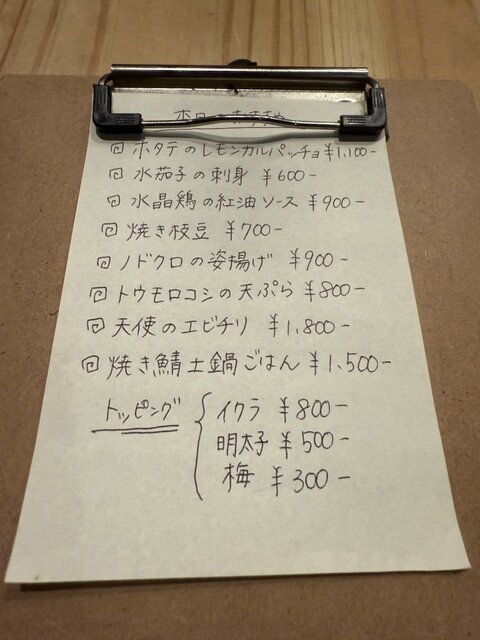 本日のおすすめ
回 ホタテのレモンカルパッチョ ¥1,100-
回 水茄子の刺身 ¥600-
回 水晶鶏の紅油ソース ¥900-
回 焼き枝豆 ¥700-
回 ノドクロの姿揚げ ¥900-
回 トウモロコシの天ぷら ¥800-
回 天使のエビチリ ¥1,800-
回 焼き鯖土鍋ごはん ¥1,500-
トッピング { イクラ ¥800-
明太子 ¥500-
梅 ¥300-